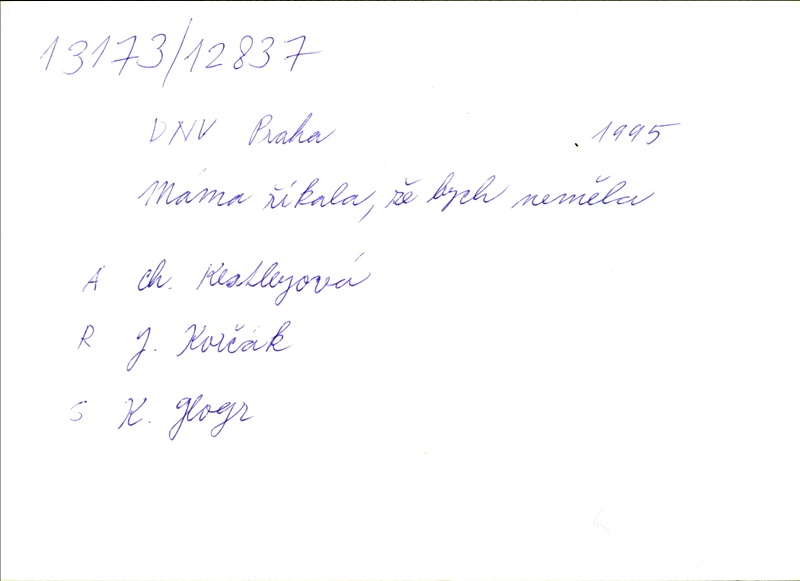 13173/12837
DNV Praha 1995
Máma říkala, že bych neměla
A Ch. Keatleyová
R J. Korčák
S K. Glogr